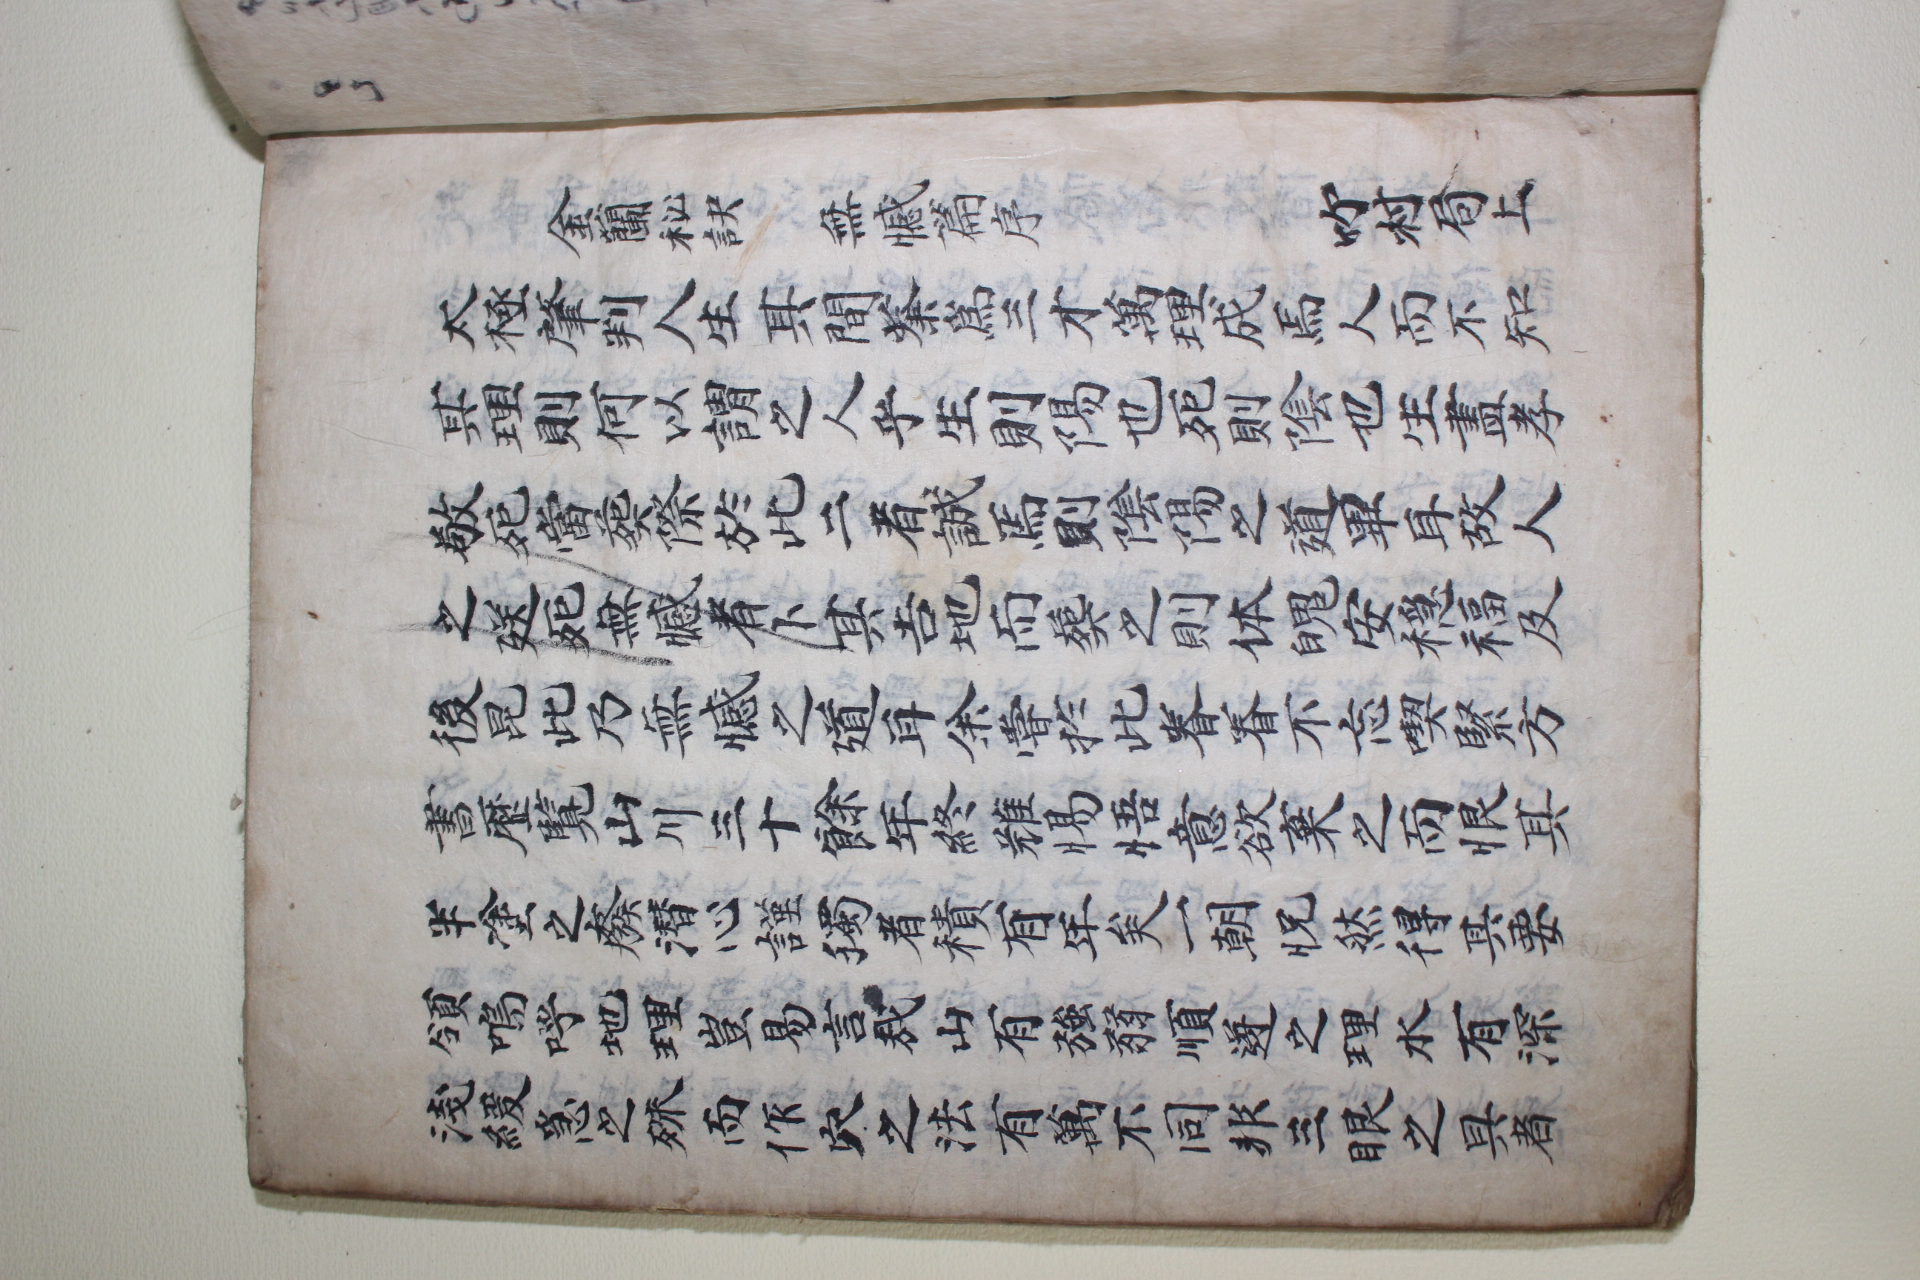 金蘭秘訣 無憾篇序 吹村局上
太極肇判人生其間叅爲三才萬理成焉人而不知
其理則何以謂之人乎生則陽也死則陰也生盡孝
敬死當葬祭於此二者誠焉則陰陽之道畢耳故人
之送死無憾者卜其吉地而葬之則体魄安穩福及
後昆此乃無憾之道耳余嘗於此眷眷不忘喫緊方
書歷覽山川三十餘年終難惕悟意欲棄之而恨其
半塗之廢潜心謹獨者積有年矣一朝怳然得其要
領嗚呼地理豈易言哉山有強弱順逆之理水有深
淺緩急之殊而作穴之法有萬不同非三眼之具者